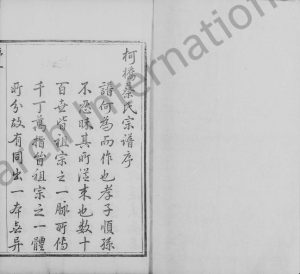 柯橋秦氏宗譜序
譜何為而作也孝子順孫
不忍昧其所從来也数十
百世皆祖宗之一脉所傳
千丁萬指皆祖宗之一體
所分故有同出一本喜异
arth Internation